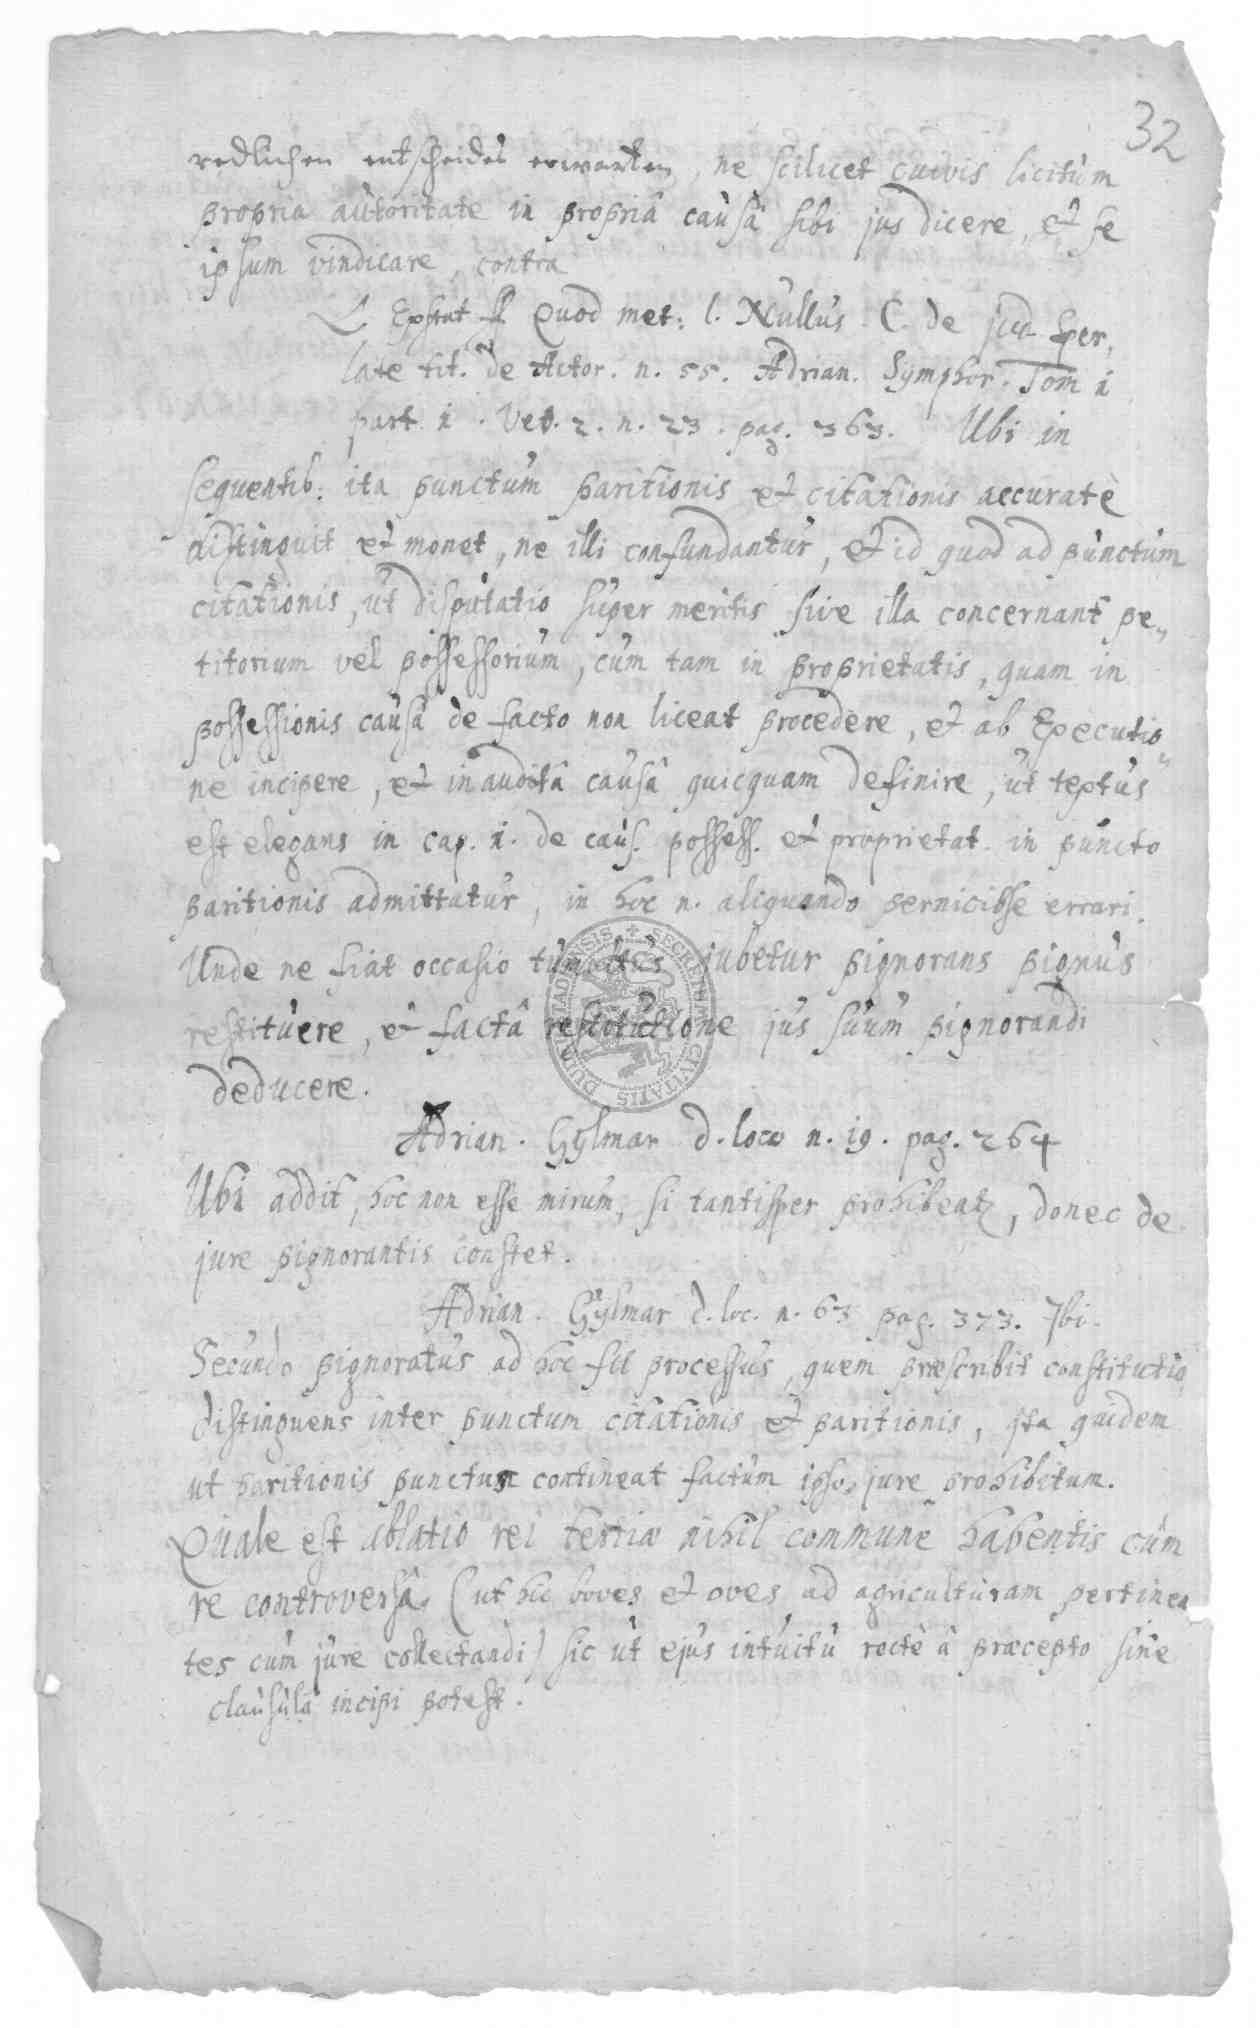 32
redlichen entscheides erwarten, ne scilicet cuivis licitum
propria autoritate in propriâ causâ sibi jus dicere, et se
ipsum vindicare, contra
L. Exstat ff Quod met: l. Nullus. C. de jud. Fer,
late tit. de Actor. n. 55. Adrian. Symphor. Tom 1
part 1. Vot. 2. n. 23. pag. 363. Ubi in
sequentib: ita punctum paritionis et citationis accuratè
distinguit et monet, ne illi confundantur, et id quod ad punctum
citationis, ut disputatio super meritis sive illa concernant pe„
titorium vel possessorium, cum tam in proprietatis, quam in
possessionis causâ de facto non liceat procedere, et ab Executio„
ne incipere, et inauditâ causâ quicquam definire, ut textus
est elegans in cap. 1. de caus. possess. et proprietat. in puncto
paritionis admittatur, in hoc n. aliquando perniciose errari.
Unde ne fiat occasio tumultus jubetur pignorans pignus
restituere, et factâ restitutione jus suum pignorandi
deducere.
Adrian. Gylmar d. loco n. 19. pag. 264
Ubi addit, hoc non esse mirum, si tantisper prohibeat, donec de
jure pignorantis constet.
Adrian. Gylmar d. loc. n. 63 pag. 373. Ibi.
Secundo pignoratus ad hoc fit processus, quem præscribit constitutio
distinguens inter punctum citationis et paritionis, ita quidem
ut paritionis punctum contineat factum ipso jure prohibitum.
Quale est ablatio rei tertiæ nihil commune habentis cum
re controversâ (ut hic boves et oves ad agriculturam pertinen
tes cum jure collectandi) sic ut ejus intuitu rectè â præcepto sine
clausulâ incipi potest.
DUDERSTADIENSIS SECRETUM CIVITATIS